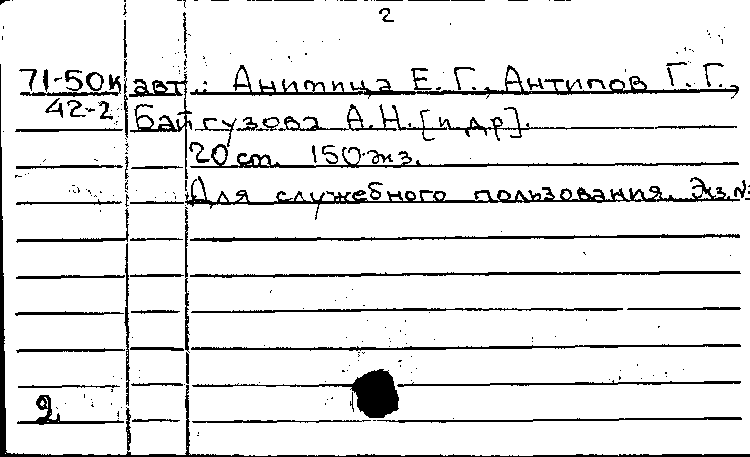 2
71-50к авт.: Анимица Е. Г., Антипов Г. Г.,
42-2 Байгузова А.Н. [и др].
20 ст. 150 экз.
Для служебного пользования. Экз. №
2